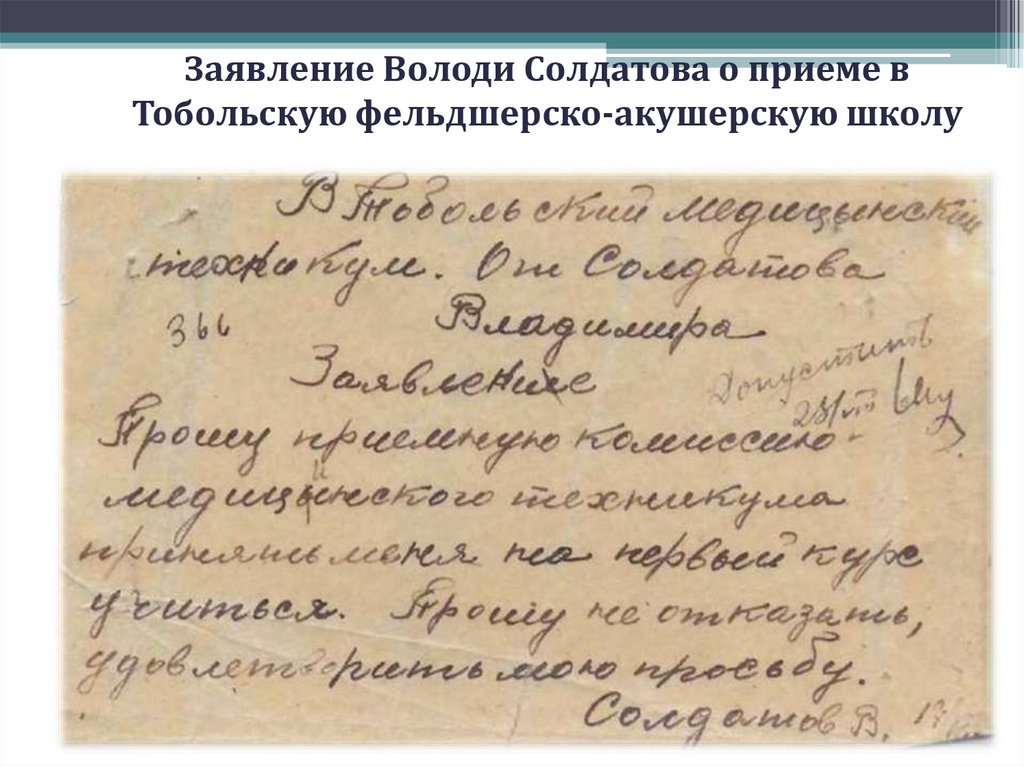 Заявление Володи Солдатова о приеме в
Тобольскую фельдшерско-акушерскую школу
В Тобольский медицынский
техникум. От Солдатова
366
Владимира
Заявление
Допустить
Прошу приемную комиссию
медицинского техникума
принять меня на первый курс
учиться. Прошу не отказать,
удовлетворить мою просьбу.
Солдатов В.